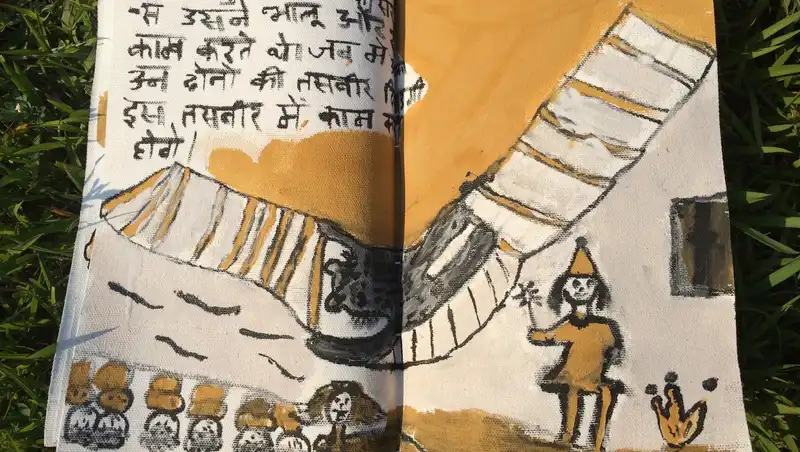 स उसने भालू और
काम करते थे। जब मैं
उन दोनों की तसवीर
इस तसवीर में काम
होगे।